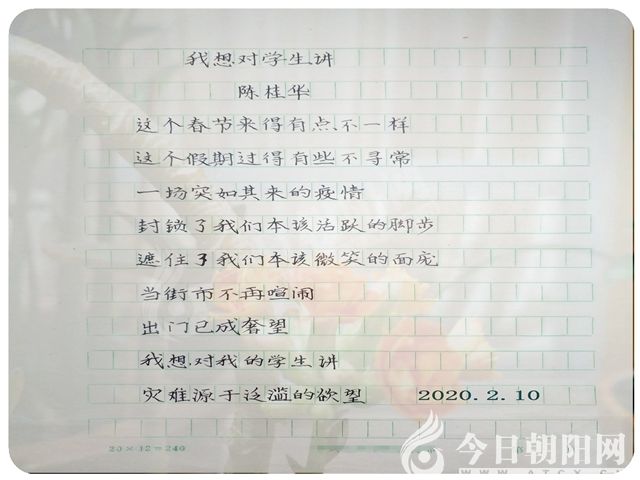 我想对学生讲
陈桂华
这个春节来得有点不一样
这个假期过得有些不寻常
一场突如其来的疫情
封锁了我们本该活跃的脚步
遮住了我们本该微笑的面庞
当街市不再喧闹
出门已成奢望
我想对我的学生讲
灾难源于泛滥的欲望 2020.2.10
20×12=240
今日朝阳网